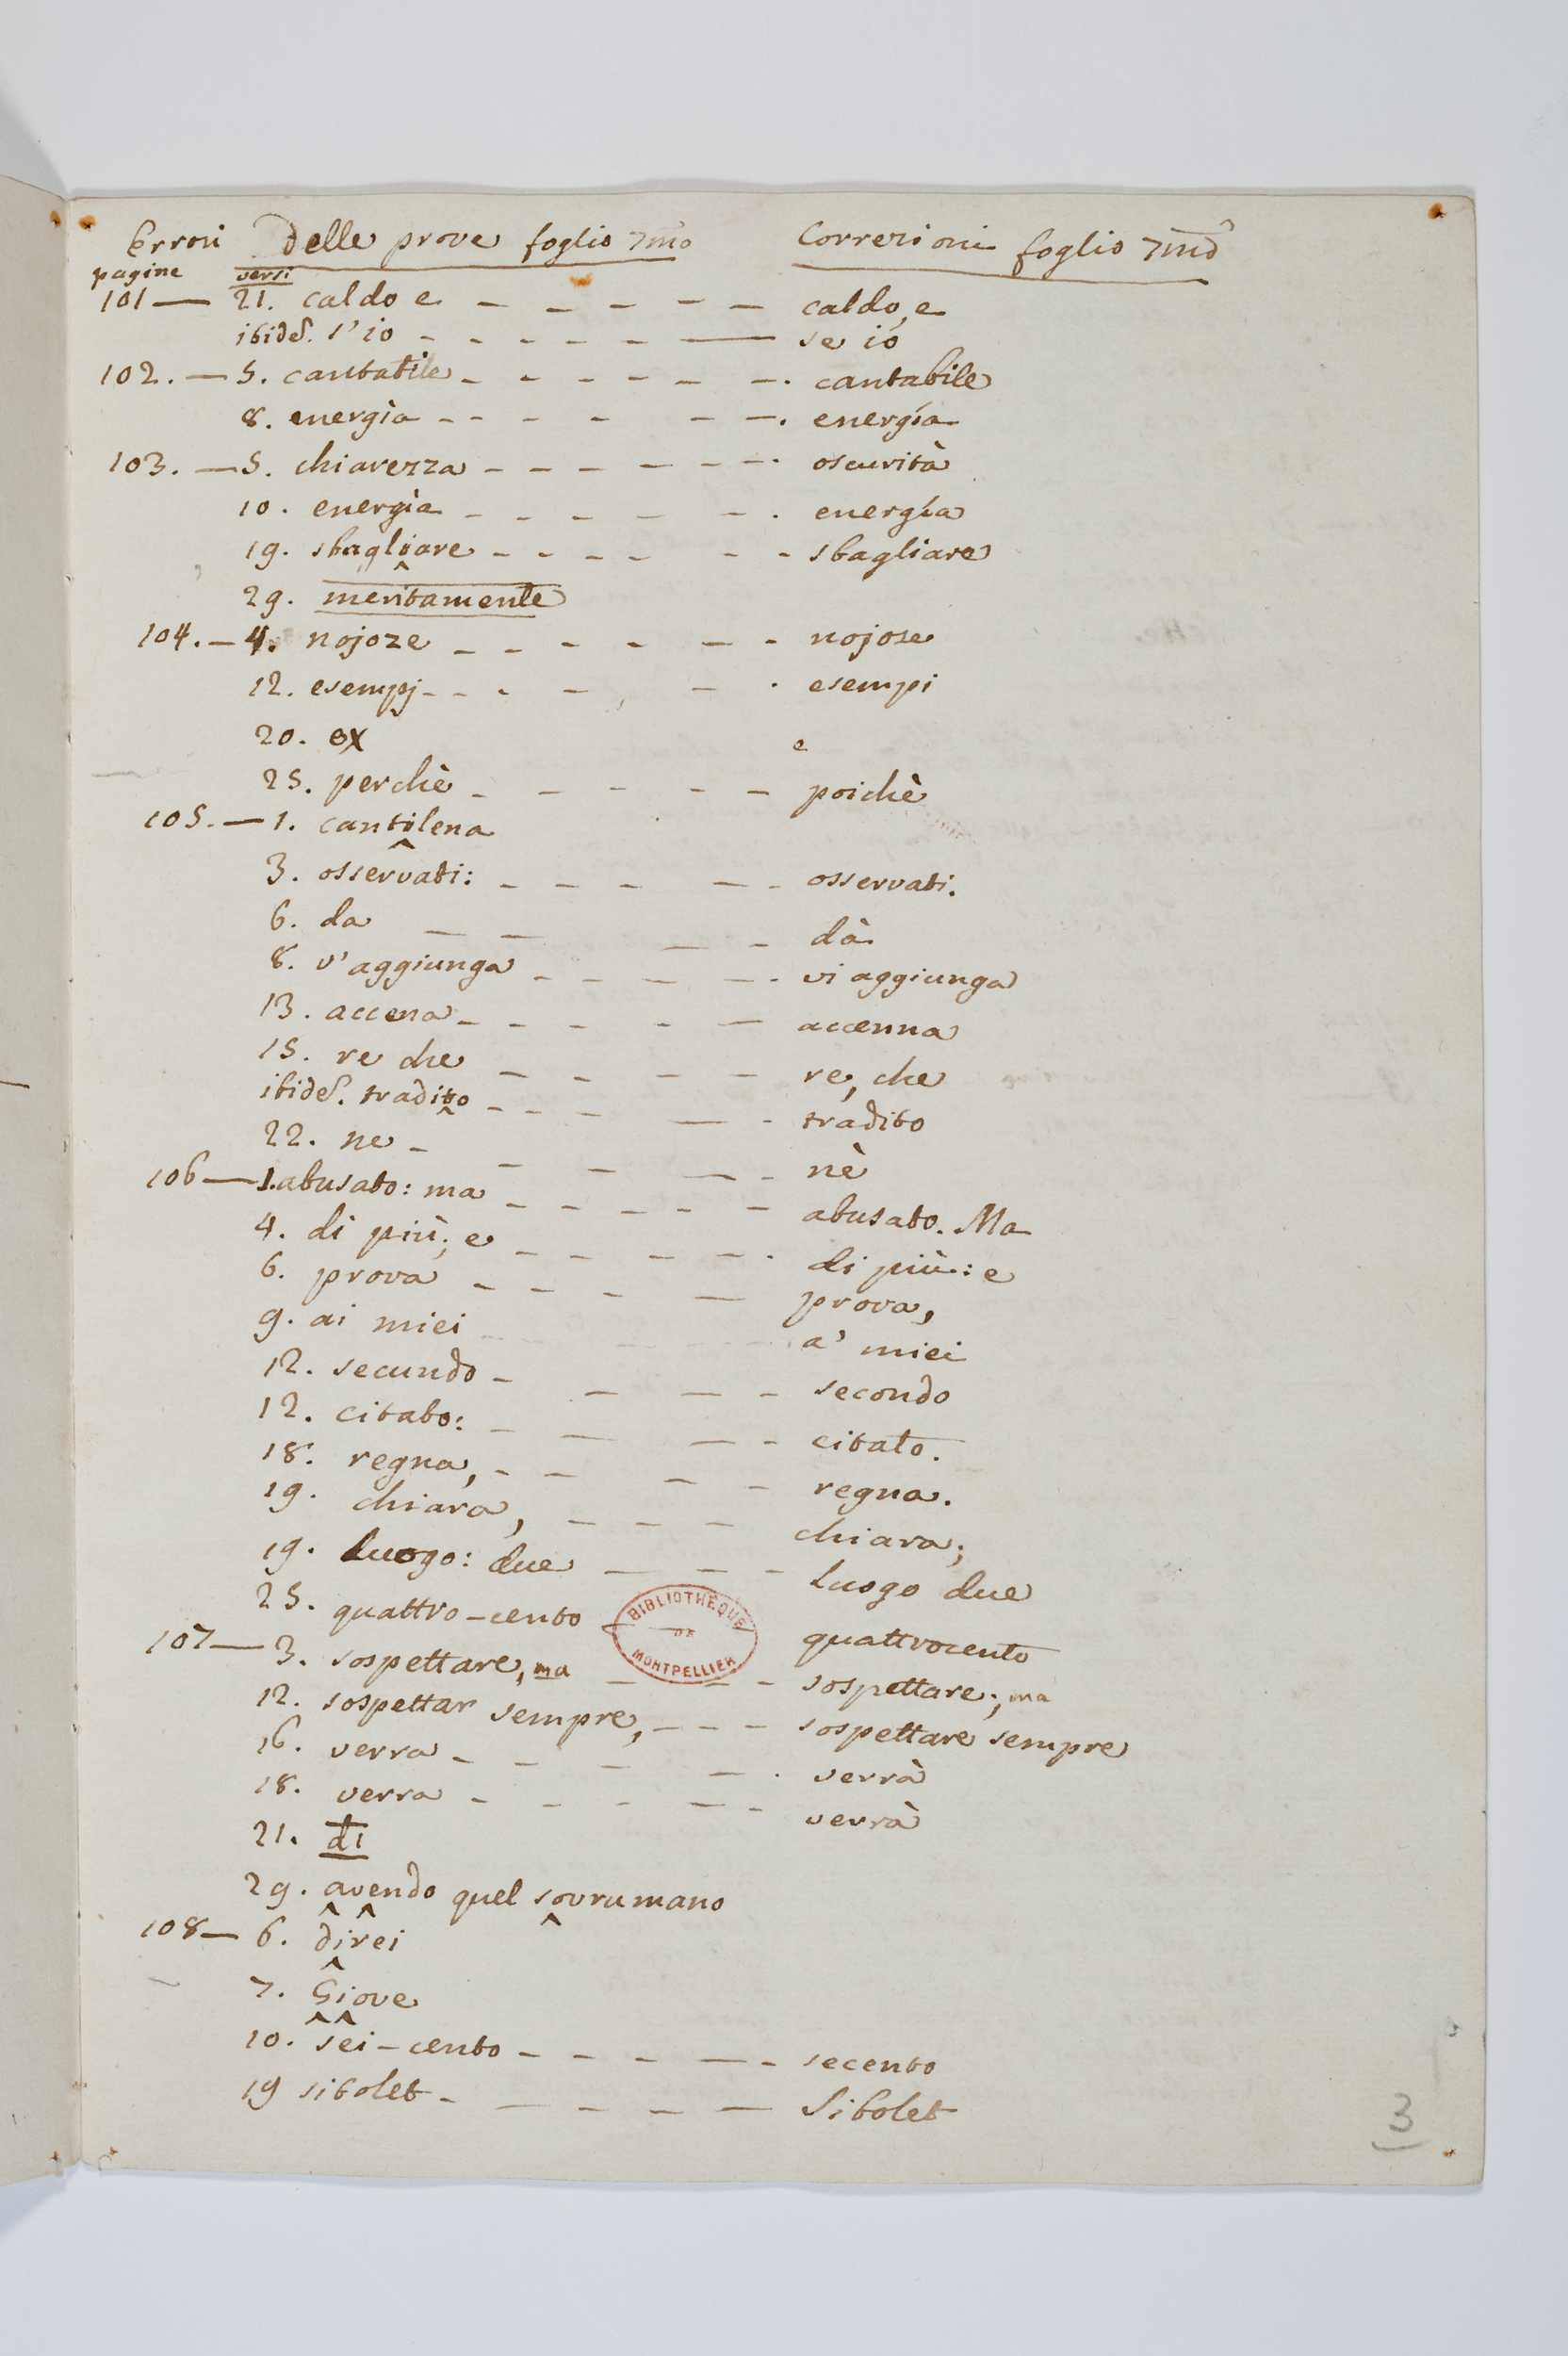 Errori Delle prove foglio 7mo Correzioni foglio 7mo
pagine versi
101 — 21. caldo e - - - - - caldo, e
ibidem. s'io - - - - - - se io
102. — 5. cantatile - - - - - cantabile
8. energìa - - - - - energía
103. — 5. chiarezza - - - - - - oscurità
10. energìa - - - - - energía
19. sbagliare - - - - - - sbagliare
29. meritamente
104. — 4. nojoze - - - - - - nojose
12. esempj - - - - - esempi
20. ex e
25. perchè - - - - - - poichè
105. — 1. cantilena
3. osservati: - - - - - osservati.
6. da - - - - dà
8. v'aggiunga - - - - - vi aggiunga
13. accena - - - - - accenna
15. re che - - - - - re, che
ibidem. tradito - - - - - tradito
22. ne - - - - - nè
106 — 1. abusato: ma - - - - - abusato. Ma
4. di più; e - - - - - di più: e
6. prova - - - - - prova,
9. ai miei - - - - a' miei
12. secundo - - - - secondo
12. citato: - - - - citato.
18. regna, - - - - regna.
19. chiara, - - - chiara;
19. luogo: due - - - luogo due
25. quattro-cento — quattrocento
BIBLIOTHÈQUE DE MONTPELLIER
107 — 3. sospettare, ma - - - - sospettare; ma
12. sospettar sempre, - - - sospettare sempre
16. verra - - - - - verrà
18. verra - - - - - verrà
21. di
29. avendo quel sovrumano
108 — 6. direi
7. Giove
10. sei-cento - - - - - secento
19 sibolet - - - - - Sibolet
3